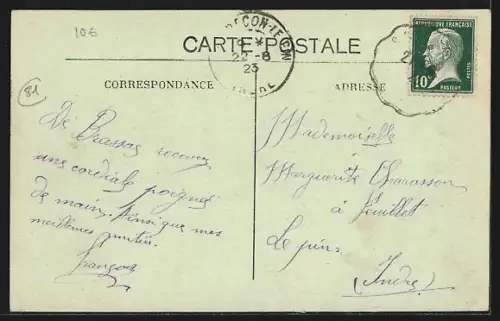 10€
CARTE POSTALE
22-8
23
REPUBLIQUE FRANÇAISE
10c
POSTES
PASTEUR
CORRESPONDANCE
ADRESSE
81
De Brassac recevez
une cordiale poignée
de main. Ainsi que mes
meilleures amitiés
François
Mademoiselle
Marguerite Charasson
à Feuillet
Le pin
(Indre)